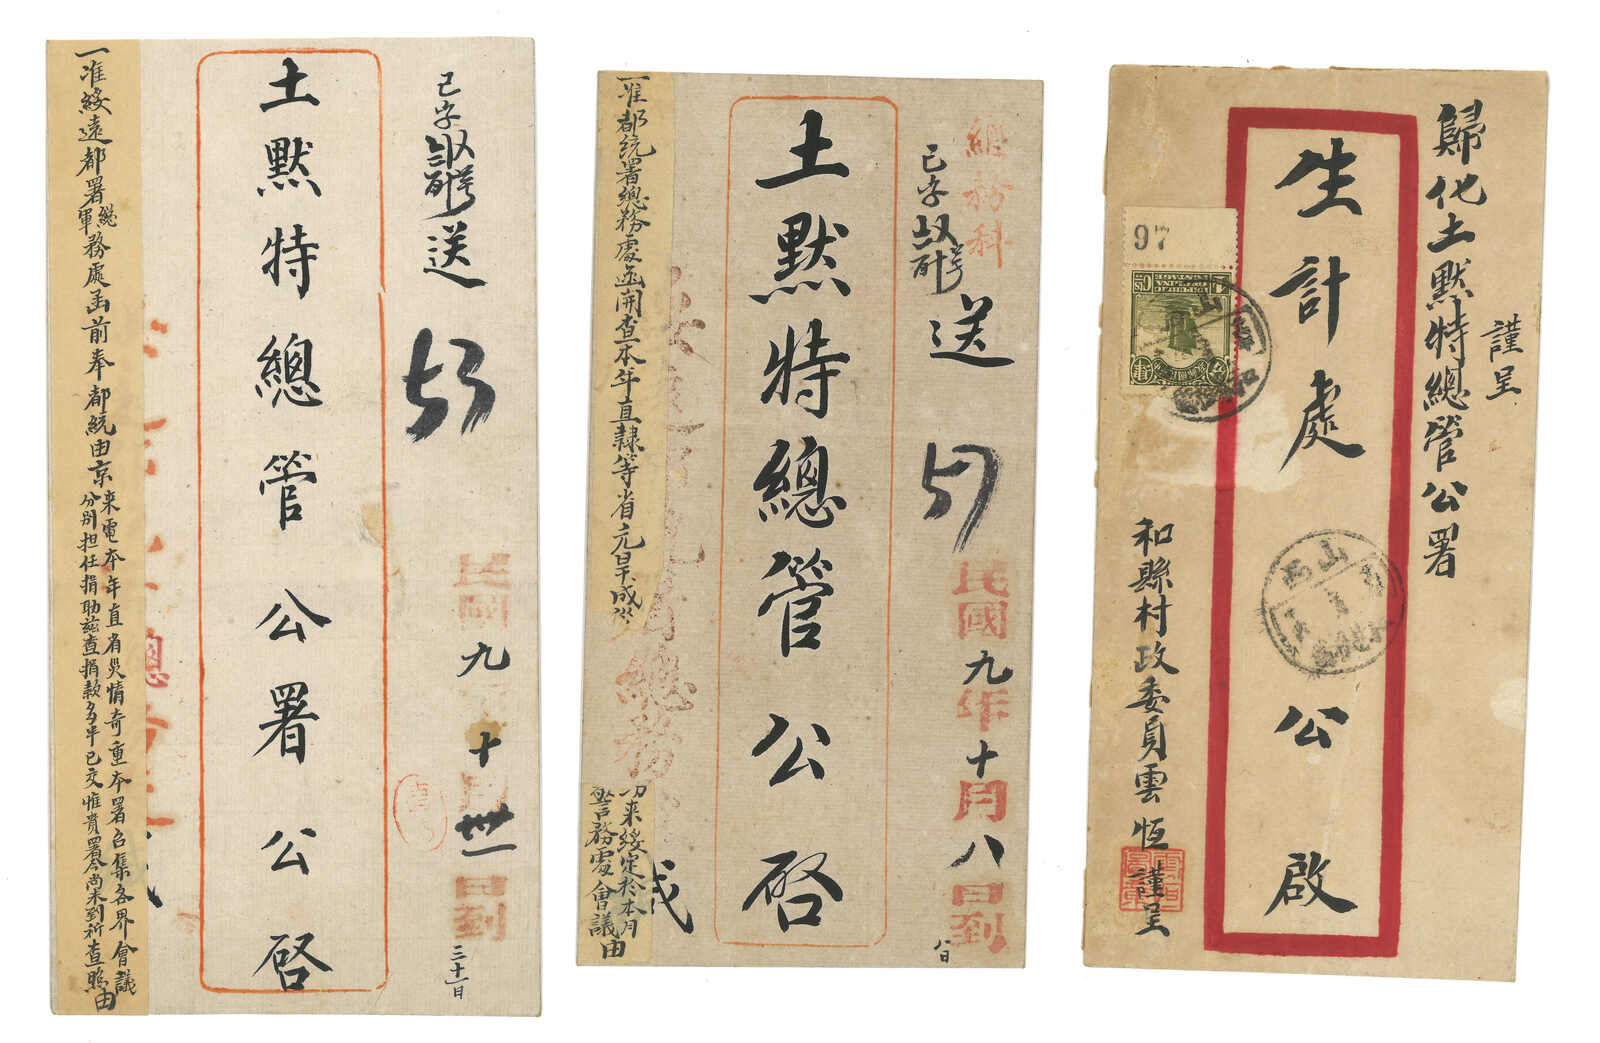 己字
送
土默特總管公署公啓
民國九年十月卅一日到
三十一日
一准綏遠都署總
軍務處函前奉都統由京
來電本年直省災情奇重本署召集各界會議
分別担任捐助茲查捐款多半已交惟貴署今尚未到祈查照由
總務科
己字
送
土默特總管公啓
民國九年十月八日到
八日
一准都統署總務處函開查本年直隸等省亢旱成災
來綏定於本月
警務處會議由
歸化土默特總管公署
謹呈
生計處公啟
和縣村政委員雲恆謹呈
97
山西